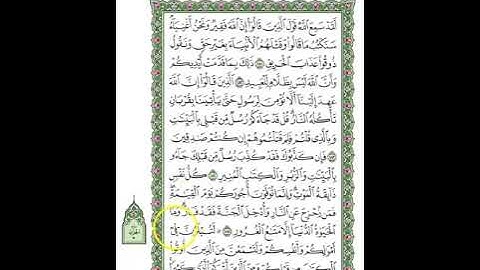 لَّقَدْ سَمِعَ ٱللَّهُ قَوْلَ ٱلَّذِينَ قَالُوٓا۟ إِنَّ ٱللَّهَ فَقِيرٌ وَنَحْنُ أَغْنِيَآءُ
سَنَكْتُبُ مَا قَالُوا۟ وَقَتْلَهُمُ ٱلْأَنۢبِيَآءَ بِغَيْرِ حَقٍّ وَنَقُولُ
ذُوقُوا۟ عَذَابَ ٱلْحَرِيقِ ۝ ذَٰلِكَ بِمَا قَدَّمَتْ أَيْدِيكُمْ
وَأَنَّ ٱللَّهَ لَيْسَ بِظَلَّامٍ لِّلْعَبِيدِ ۝ ٱلَّذِينَ قَالُوٓا۟ إِنَّ ٱللَّهَ
عَهِدَ إِلَيْنَآ أَلَّا نُؤْمِنَ لِرَسُولٍ حَتَّىٰ يَأْتِيَنَا بِقُرْبَانٍ
تَأْكُلُهُ ٱلنَّارُ قُلْ قَدْ جَآءَكُمْ رُسُلٌ مِّن قَبْلِى بِٱلْبَيِّنَٰتِ
وَبِٱلَّذِى قُلْتُمْ فَلِمَ قَتَلْتُمُوهُمْ إِن كُنتُمْ صَٰدِقِينَ
۝ فَإِن كَذَّبُوكَ فَقَدْ كُذِّبَ رُسُلٌ مِّن قَبْلِكَ جَآءُو
بِٱلْبَيِّنَٰتِ وَٱلزُّبُرِ وَٱلْكِتَٰبِ ٱلْمُنِيرِ ۝ كُلُّ نَفْسٍ
ذَآئِقَةُ ٱلْمَوْتِ وَإِنَّمَا تُوَفَّوْنَ أُجُورَكُمْ يَوْمَ ٱلْقِيَٰمَةِ
فَمَن زُحْزِحَ عَنِ ٱلنَّارِ وَأُدْخِلَ ٱلْجَنَّةَ فَقَدْ فَازَ وَمَا
ٱلْحَيَوٰةُ ٱلدُّنْيَآ إِلَّا مَتَٰعُ ٱلْغُرُورِ ۝ لَتُبْلَوُنَّ فِىٓ
أَمْوَٰلِكُمْ وَأَنفُسِكُمْ وَلَتَسْمَعُنَّ مِنَ ٱلَّذِينَ أُوتُوا۟